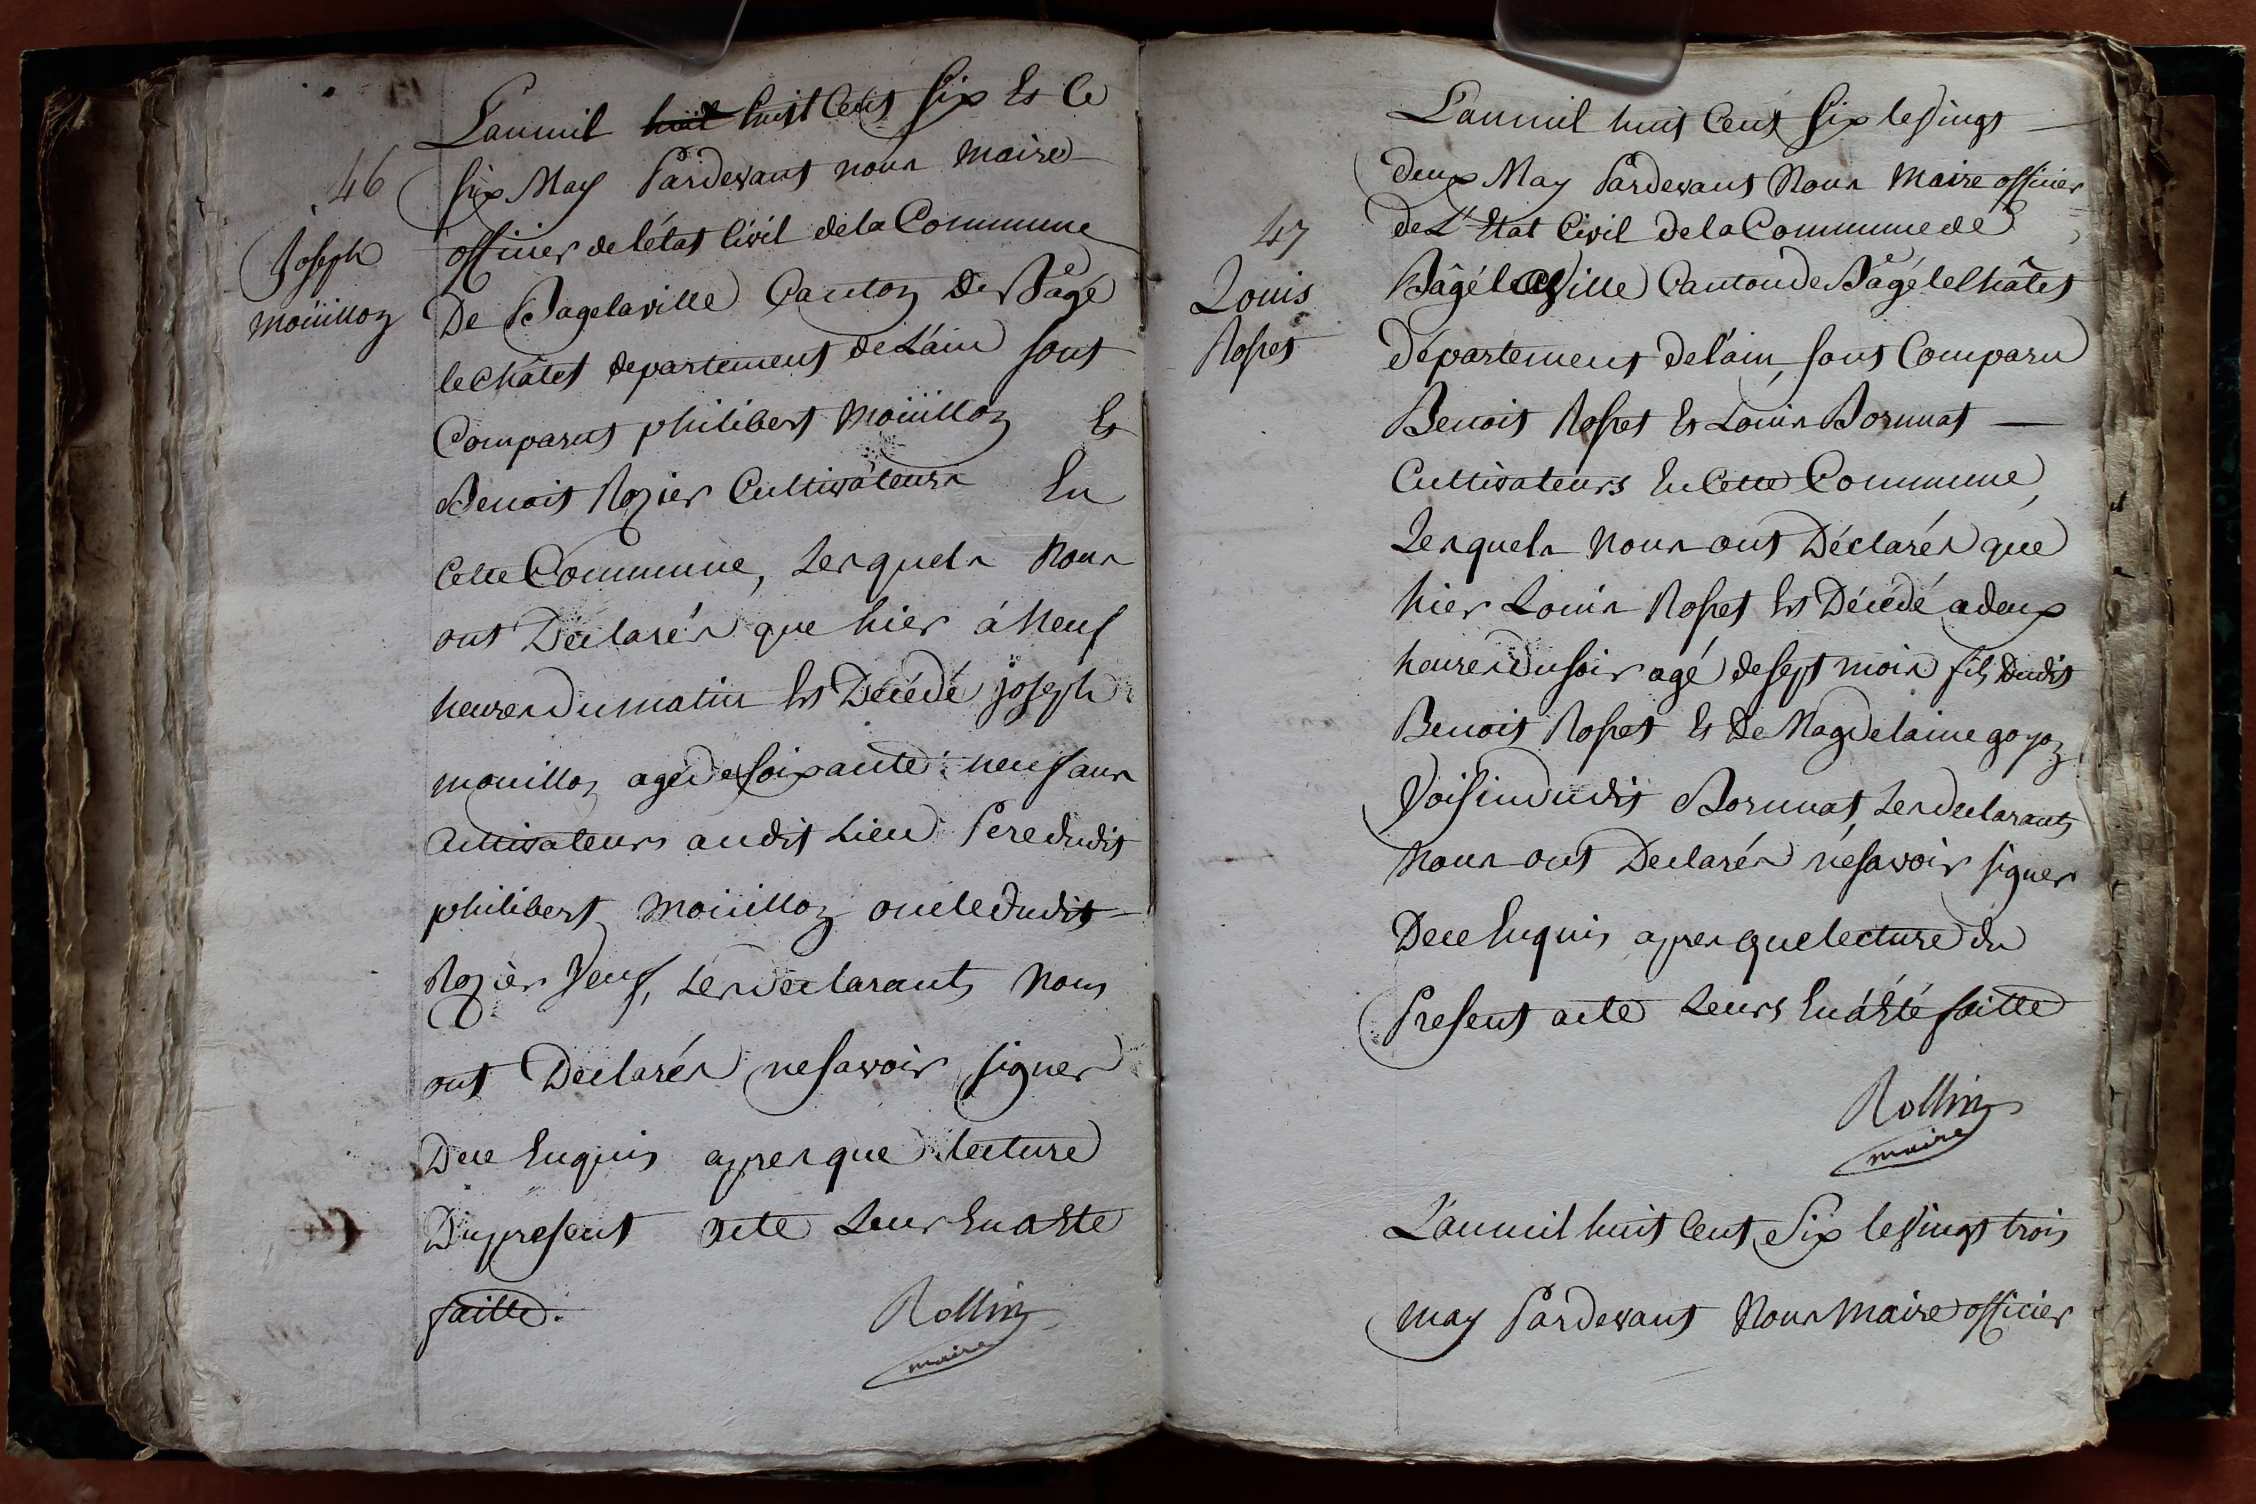 46
Joseph
Moüillon
L'an mil huit huit Cents Six Et Le
six May Pardevant nous Maire
officier de l'état Civil de la Commune
De Bagelaville Canton De Bâgé
le Châtel departement de L'ain sont
Comparus philibert Moüillon Et
Benoit Rozier Cultivateurs En
Cette Commune, Lesquels Nous
ont Déclarés que hier á Neuf
heures Du matin Est Décédé joseph
mouillon agé De soixante neuf ans
Cultivateurs audit Lieu Pere dudit
philibert Moüillon oncle dudit
Rozier Veuf, Les declarants Nous
ont Declarés ne savoir signer
De ce Enquis apres que lecture
Du present acte Leur En a Eté
faitte.
Rollin
maire
47
Louis
Rosset
L'an mil huit Cent Six le Vingt
deux May Pardevant Nous Maire officier
de L'Etat Civil de la Commune de
Bâgé la Ville Canton de Bâgé le Châtel
département de l'ain, sont Comparu
Benoit Rosset Et Louis Bornnat
Cultivateurs En Cette Commune,
Lesquels Nous ont Déclarés que
hier Louis Rosset Est Décédé a deux
heures Du soir agé de sept mois fils Dudit
Benoit Rosset Et De Magdelaine goyon
Voisin dudit Bornnat, Les declarants
Nous ont Declarés ne savoir signer
De ce Enquis apres que lecture du
Present acte Leurs En á Eté faitte
Rollin
maire
L'an mil huit Cent Six le Vingt trois
may Pardevant Nous Maire officier